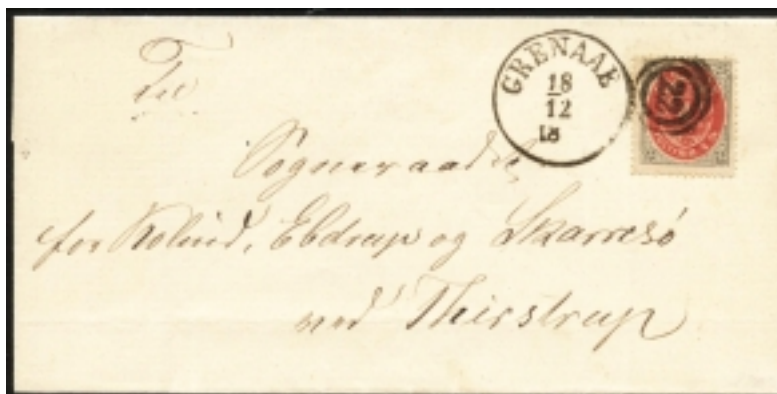 Til
GRENAAE
18
12
Sogneraadet
for Kolind, Ebdrup og Skarresø
ved Thirstrup